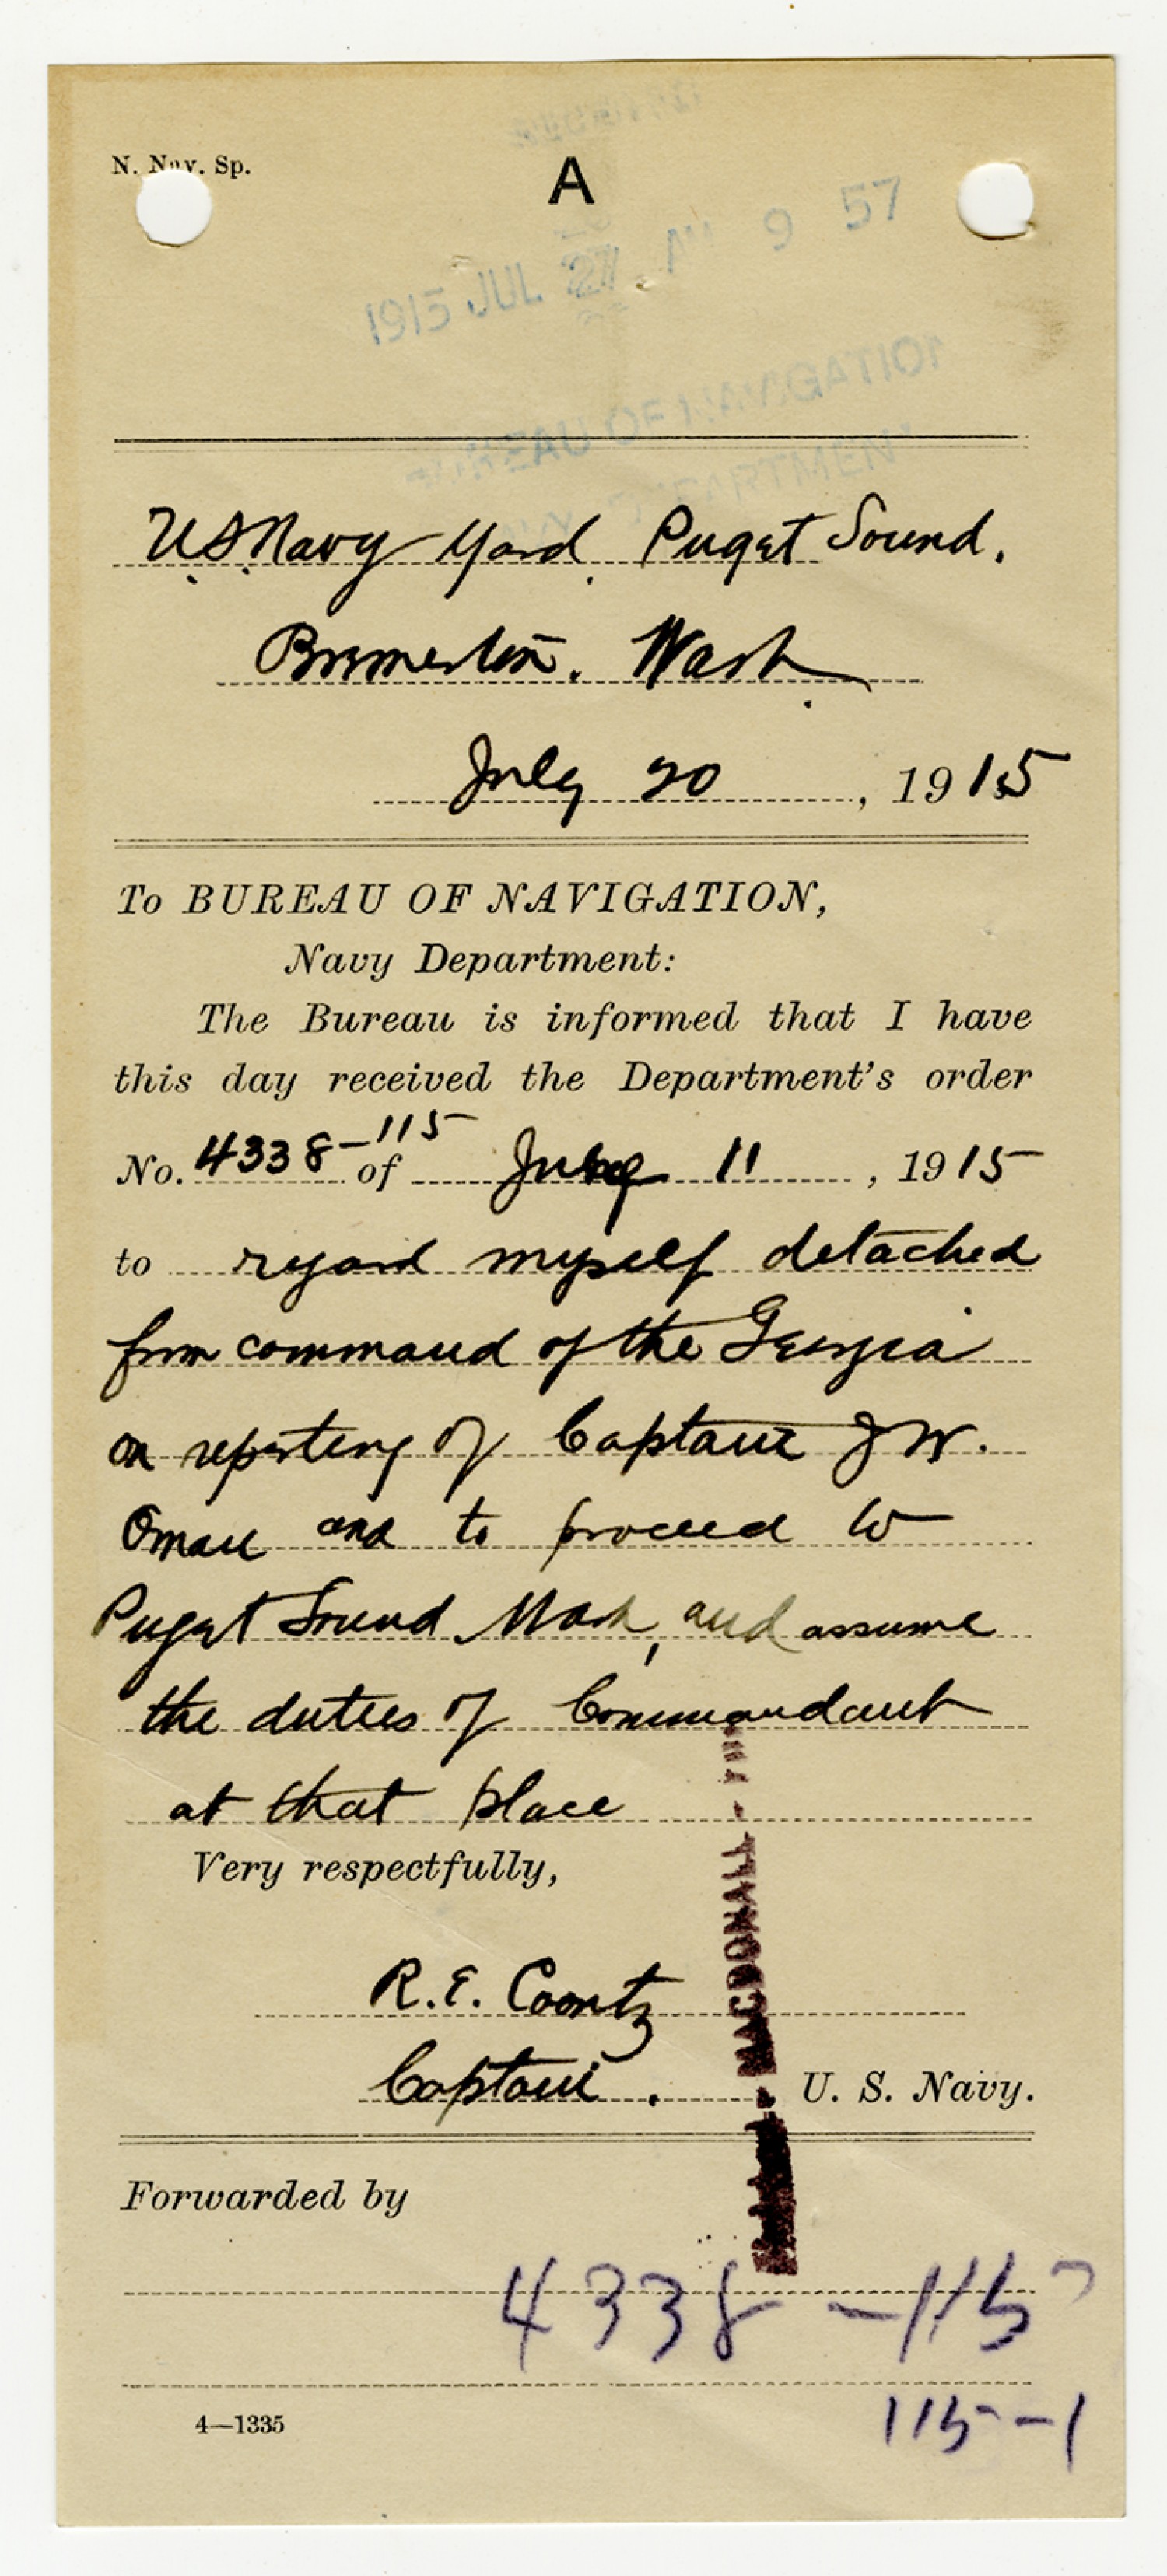 N. Nav. Sp.
A
1915 JUL 27 AM 9 57
BUREAU OF NAVIGATION
DEPARTMENT
U.S. Navy Yard, Puget Sound,
Bremerton, Wash.
July 20, 1915
To BUREAU OF NAVIGATION,
Navy Department:
The Bureau is informed that I have
this day received the Department's order
No. 4338-115 of 11, 1915
to regard myself detached
from command of the Georgia
on reporting of Captain J W.
Oman and to proceed to
Puget Sound Wash, and assume
the duties of Commandant
at that place
Very respectfully,
R.E. Coontz
Captain. U. S. Navy.
MACDONALL
Forwarded by
4338-115
4—1335
115-1